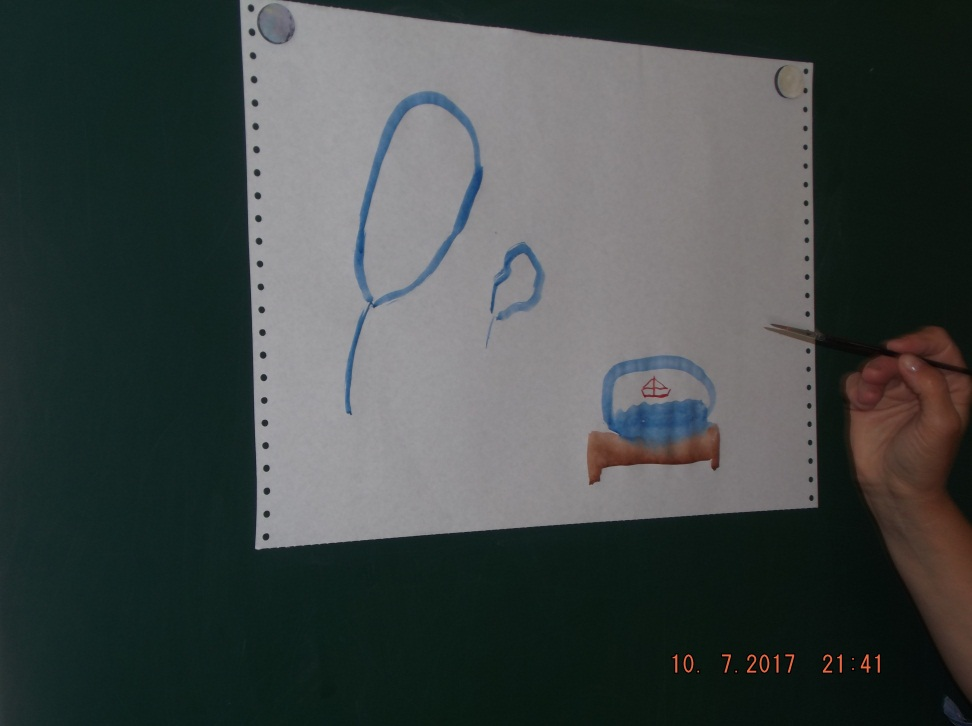 10. 7.2017 21:41